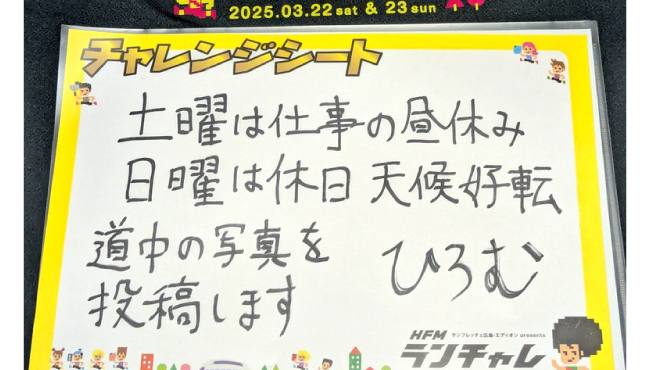 2025.03.22 sat & 23 sun
チャレンジシート
土曜は仕事の昼休み
日曜は休日 天候好転
道中の写真を
投稿します
ひろむ
HFM
ランフレッチェ広島・エディオン presents
ランチャレ